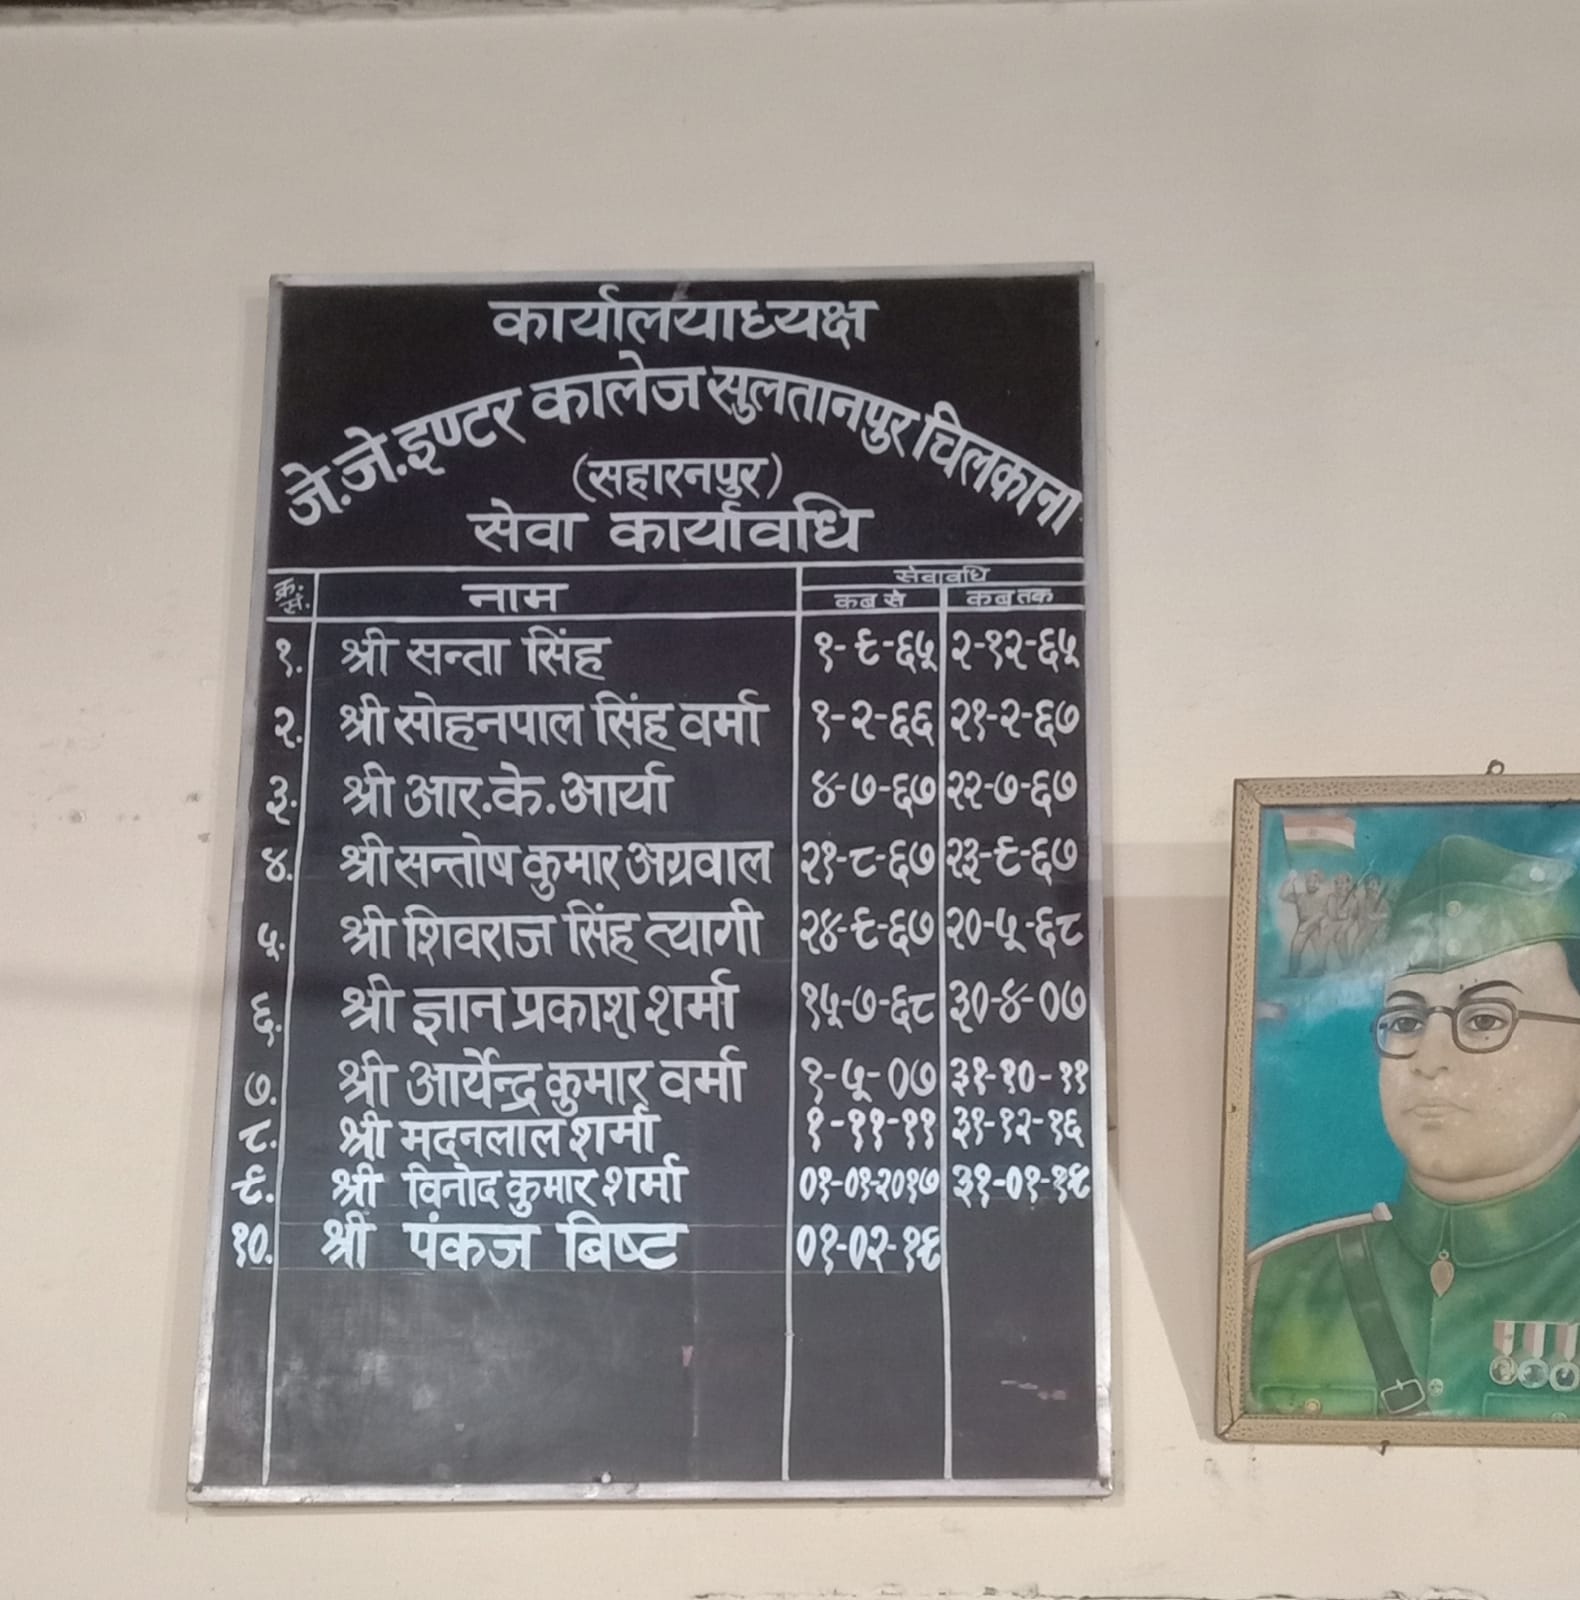 कार्यालयाध्यक्ष
जे.जे.इण्टर कालेज सुलतानपुर चिलकाना
(सहारनपुर)
सेवा कार्यावधि
क्र.सं. नाम सेवावधि
कब से कब तक
१. श्री सन्ता सिंह १-९-६५ २-१२-६५
२. श्री सोहनपाल सिंह वर्मा १-२-६६ २१-२-६७
३. श्री आर.के.आर्या ४-७-६७ २२-७-६७
४. श्री सन्तोष कुमार अग्रवाल २१-८-६७ २३-९-६७
५. श्री शिवराज सिंह त्यागी २४-९-६७ २०-५-६८
६. श्री ज्ञान प्रकाश शर्मा १५-७-६८ ३०-४-०७
७. श्री आर्येन्द्र कुमार वर्मा १-५-०७ ३१-१०-११
८. श्री मदनलाल शर्मा १-११-११ ३१-१२-१६
९. श्री विनोद कुमार शर्मा ०१-०१-२०१७ ३१-०१-१९
१०. श्री पंकज बिष्ट ०१-०२-१९